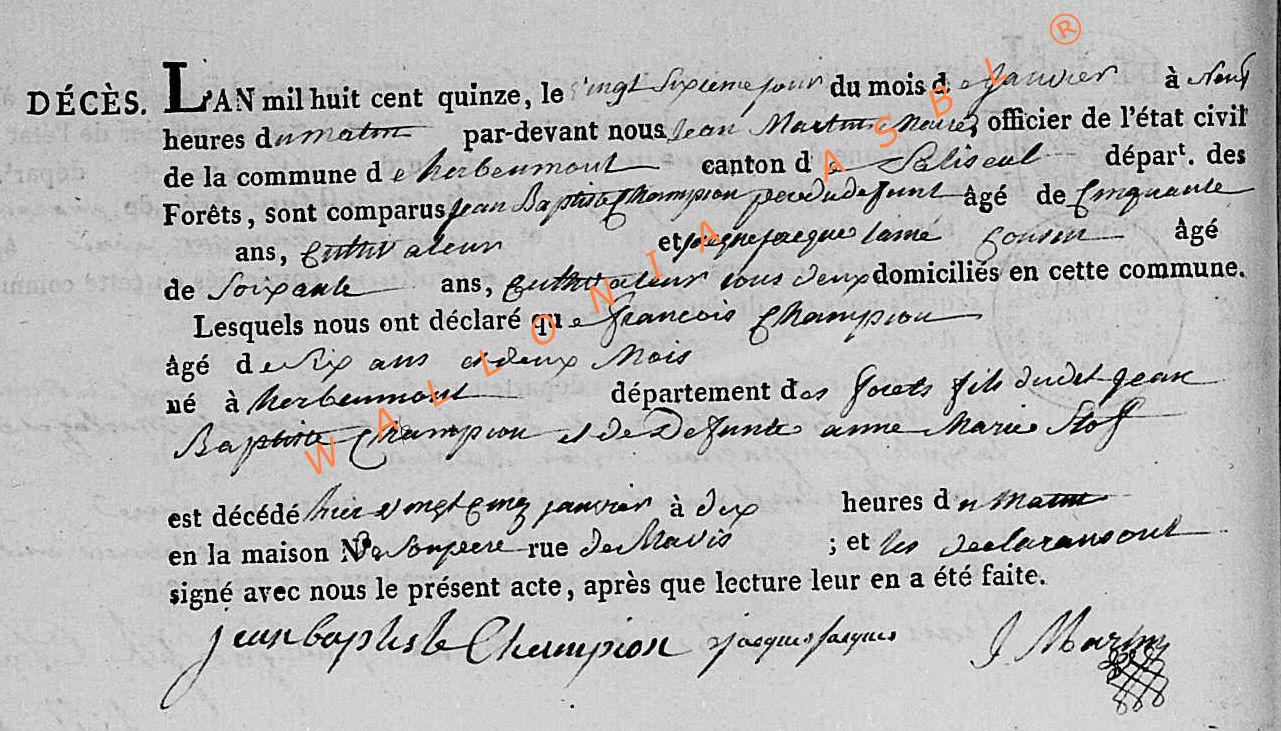 DÉCÈS. L'AN mil huit cent quinze, le vingt sixieme jour du mois de janvier à neuf
heures du matin par-devant nous Jean Martin Maire, officier de l'état civil
de la commune de herbeumont canton de Paliseul départ. des
Forêts, sont comparus jean Baptiste Champion pere du defunt âgé de Cinquante
ans, Cultivateur et jacque jacque lainé Cousin âgé
de Soixante ans, Cultivateur tous deux domiciliés en cette commune.
Lesquels nous ont déclaré que francois Champion
âgé de Six ans et deux Mois
né à herbeumont département des forets fils dudit jean
Baptiste Champion et de Defunte anne Marie
est décédé hier vingt Cinq janvier à deux heures du Matin
en la maison de Son pere rue ; et les declarans ont
signé avec nous le présent acte, après que lecture leur en a été faite.
jean baptiste Champion jacque jacques J Martin
WALLONIA ASBL ®